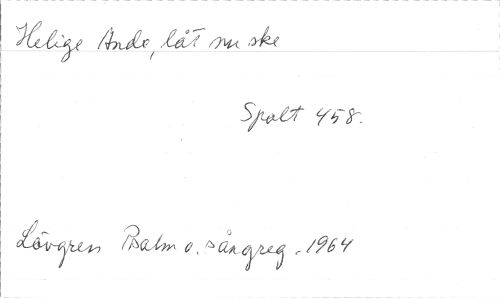 Helige Ande, låt nu ske
Spalt 458.
Lövgren Psalm o. sångreg. 1964